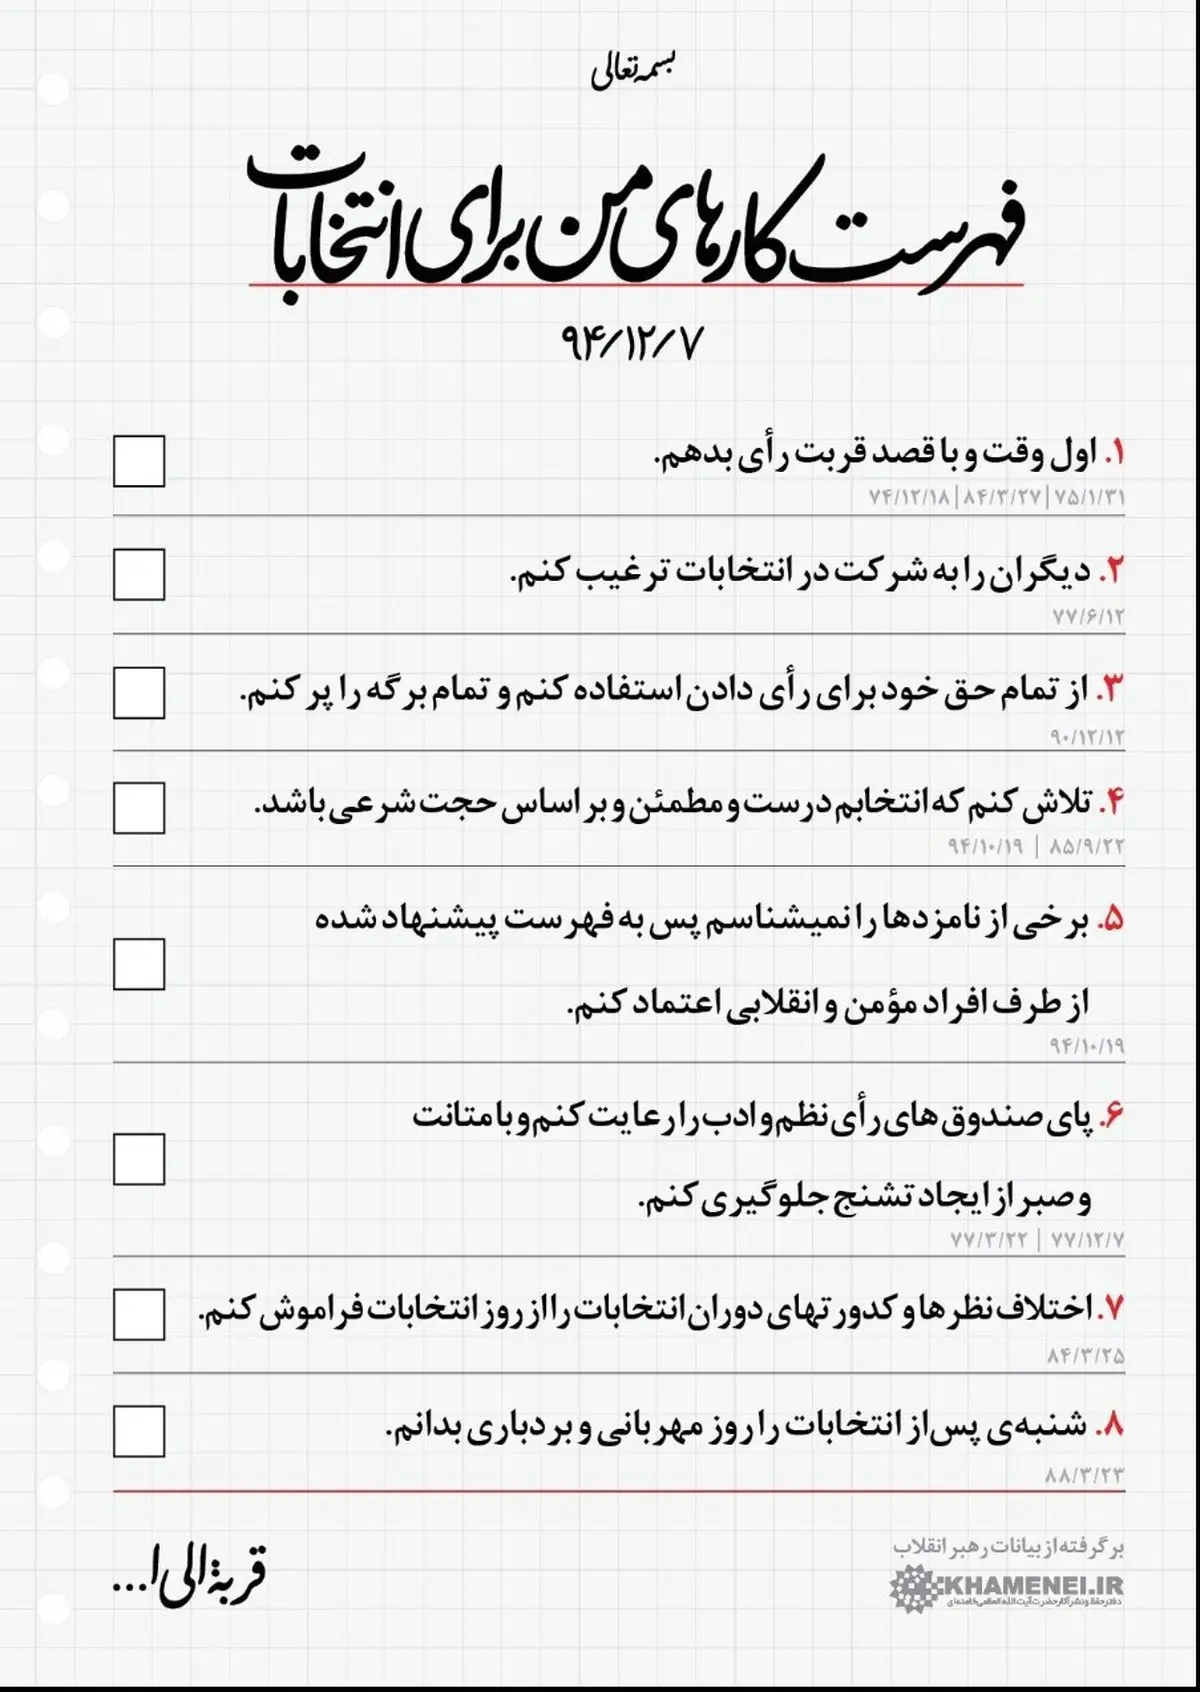 بسمه تعالی
فهرست کارهای من برای انتخابات
۹۴/۱۲/۷
۱. اول وقت و با قصد قربت رأی بدهم.
۷۴/۱۲/۱۸|۸۴/۳/۲۷|۷۵/۱/۳۱
۲. دیگران را به شرکت در انتخابات ترغیب کنم.
۷۷/۶/۱۲
۳. از تمام حق خود برای رأی دادن استفاده کنم و تمام برگه را پر کنم.
۹۰/۱۲/۱۲
۴. تلاش کنم که انتخابم درست و مطمئن و بر اساس حجت شرعی باشد.
۹۴/۱۰/۱۹ | ۸۵/۹/۲۲
۵. برخی از نامزدها را نمیشناسم پس به فهرست پیشنهاد شده
از طرف افراد مؤمن و انقلابی اعتماد کنم.
۹۴/۱۰/۱۹
۶. پای صندوق های رأی نظم و ادب را رعایت کنم و با متانت
و صبر از ایجاد تشنج جلوگیری کنم.
۷۷/۳/۲۲ | ۷۷/۱۲/۷
۷. اختلاف نظرها و کدورتهای دوران انتخابات را از روز انتخابات فراموش کنم.
۸۴/۳/۲۵
۸. شنبه‌ی پس از انتخابات را روز مهربانی و بردباری بدانم.
۸۸/۳/۲۳
برگرفته از بیانات رهبر انقلاب
KHAMENEI.IR
دفتر حفظ و نشر آثار حضرت آیت‌الله العظمی خامنه‌ای
قربة الی ا...